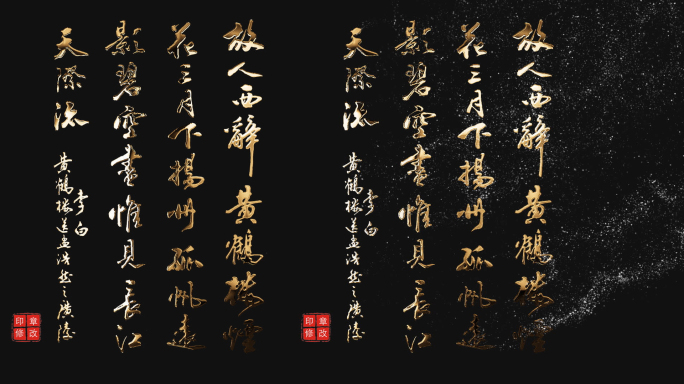 故人西辭黄鶴樓煙
花三月下揚州孤帆遠
影碧空盡惟見長江
天際流
李白
黄鶴樓送孟浩然之廣陵
印章
修改
故人西辭黄鶴樓煙
花三月下揚州孤帆遠
影碧空盡惟見長江
天際流
李白
黄鶴樓送孟浩然之廣陵
印章
修改